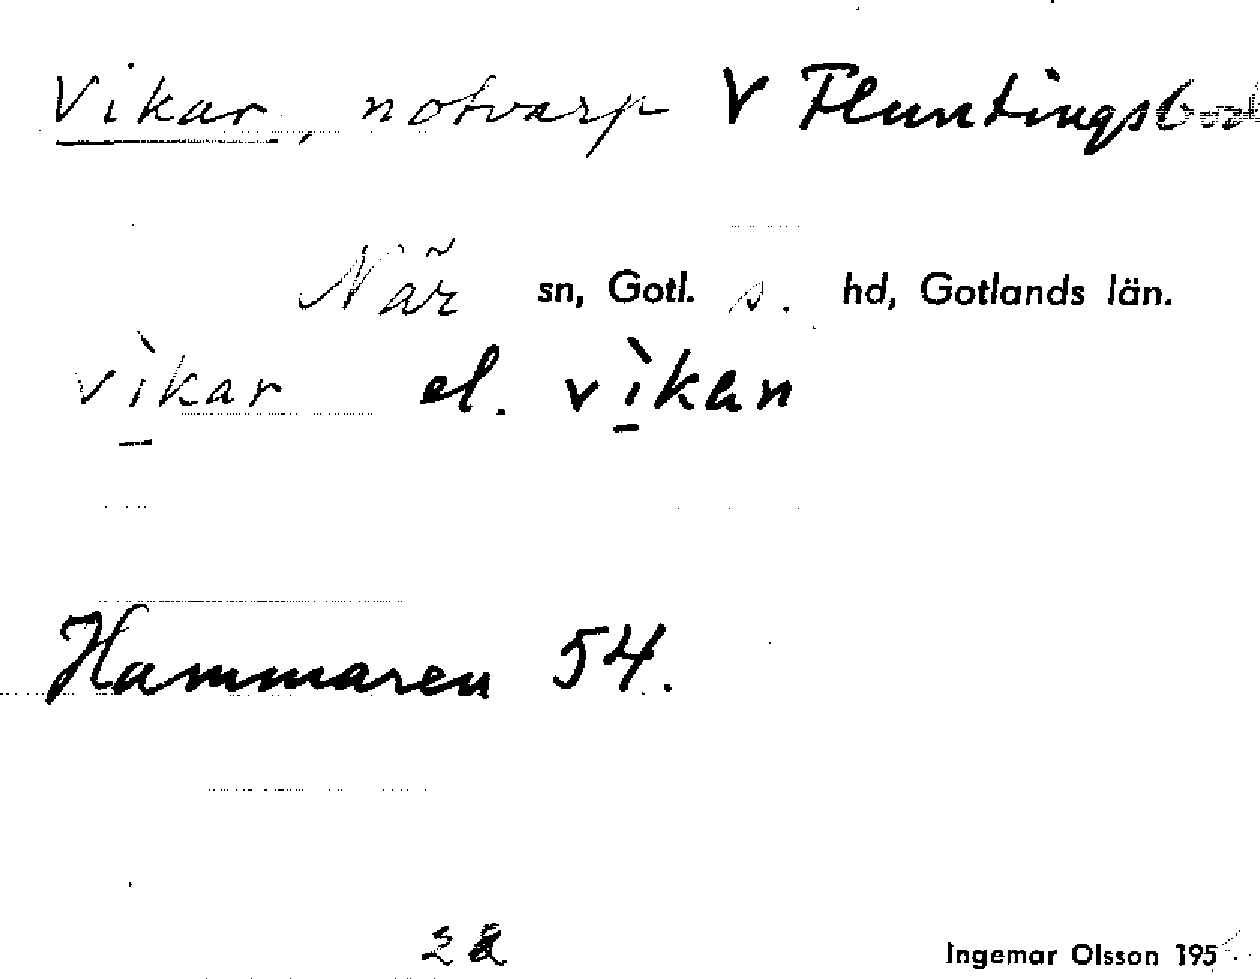 Vikar, notvarp V Fluntingsb
När sn, Gotl. s. hd, Gotlands län.
vìkar el. vìkan
Hammaren 54.
Ingemar Olsson 195